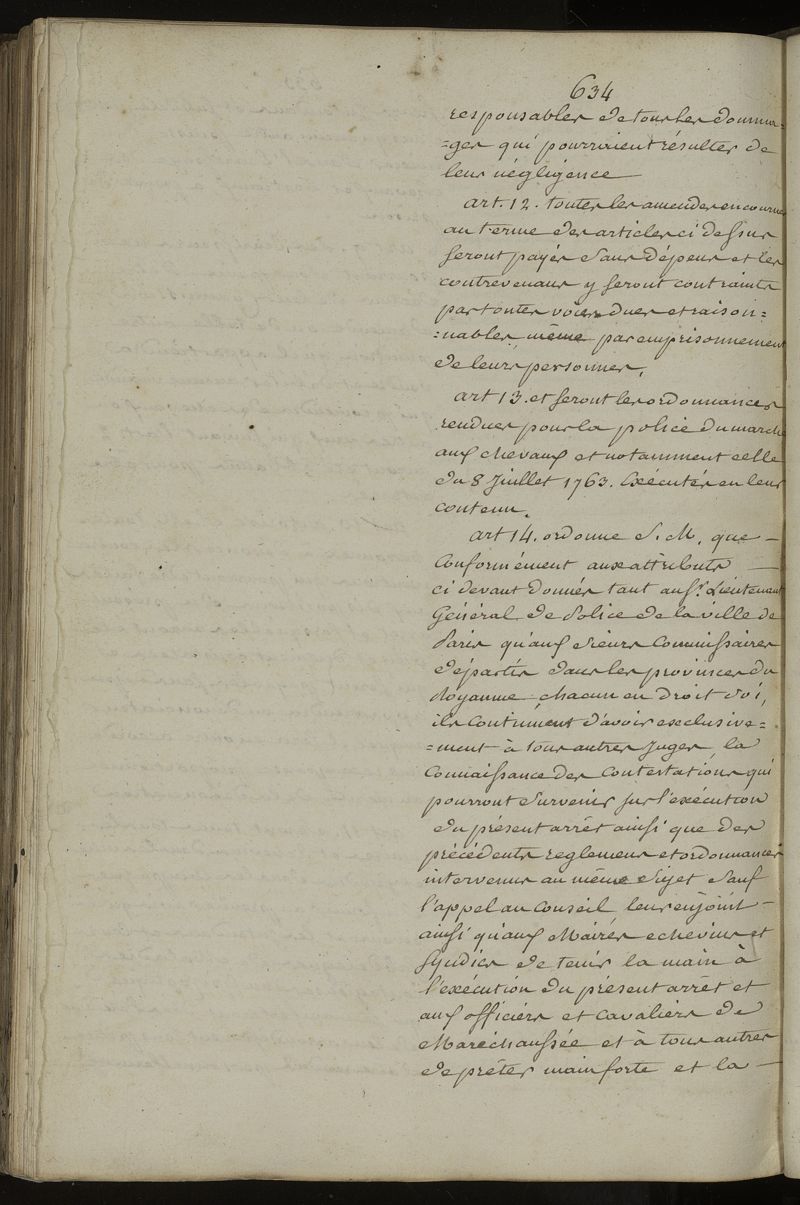 634
responsables de tous les domma-
=ges qui pourroient résulter de
leur négligence
art. 12. toutes les amendes encourues
au terme des articles ci dessus
seront payés sans dépens et les
contrevenans y seront contraints
par toutes voies dues et raison=
=nables même par emprisonnement
de leurs personnes,
art 13. et seront les ordonnances
rendues pour la police du marché
aux chevaux et notamment celle
du 8 Juillet 1763. Exécutés en leur
contenu.
art 14. ordonne S. M. que —
Conformément aux attributs —
ci devant donnés tant au Sr. Lieutenant
Général de Police de la ville de
Paris qu'aux Sieurs Commissaires
départis dans les provinces du
Royaume chacun en Droit Soi,
ils continuent d'avoir exclusive=
=ment à tous autres Juges, la
Connaissance des Contestations qui
pourront Survenir sur l'exécution
du présent arrêt ainsi que des
précédents reglemens et ordonnances
intervenus au même Sujet Sauf
l'appel au Conseil leur enjoint —
ainsi qu'aux Maires echevins et
Syndics de tenir la main à
l'exécution du présent arrêt et
aux officiers et cavaliers de
Maréchaussée et à tous autres
de prêter main forte et la —